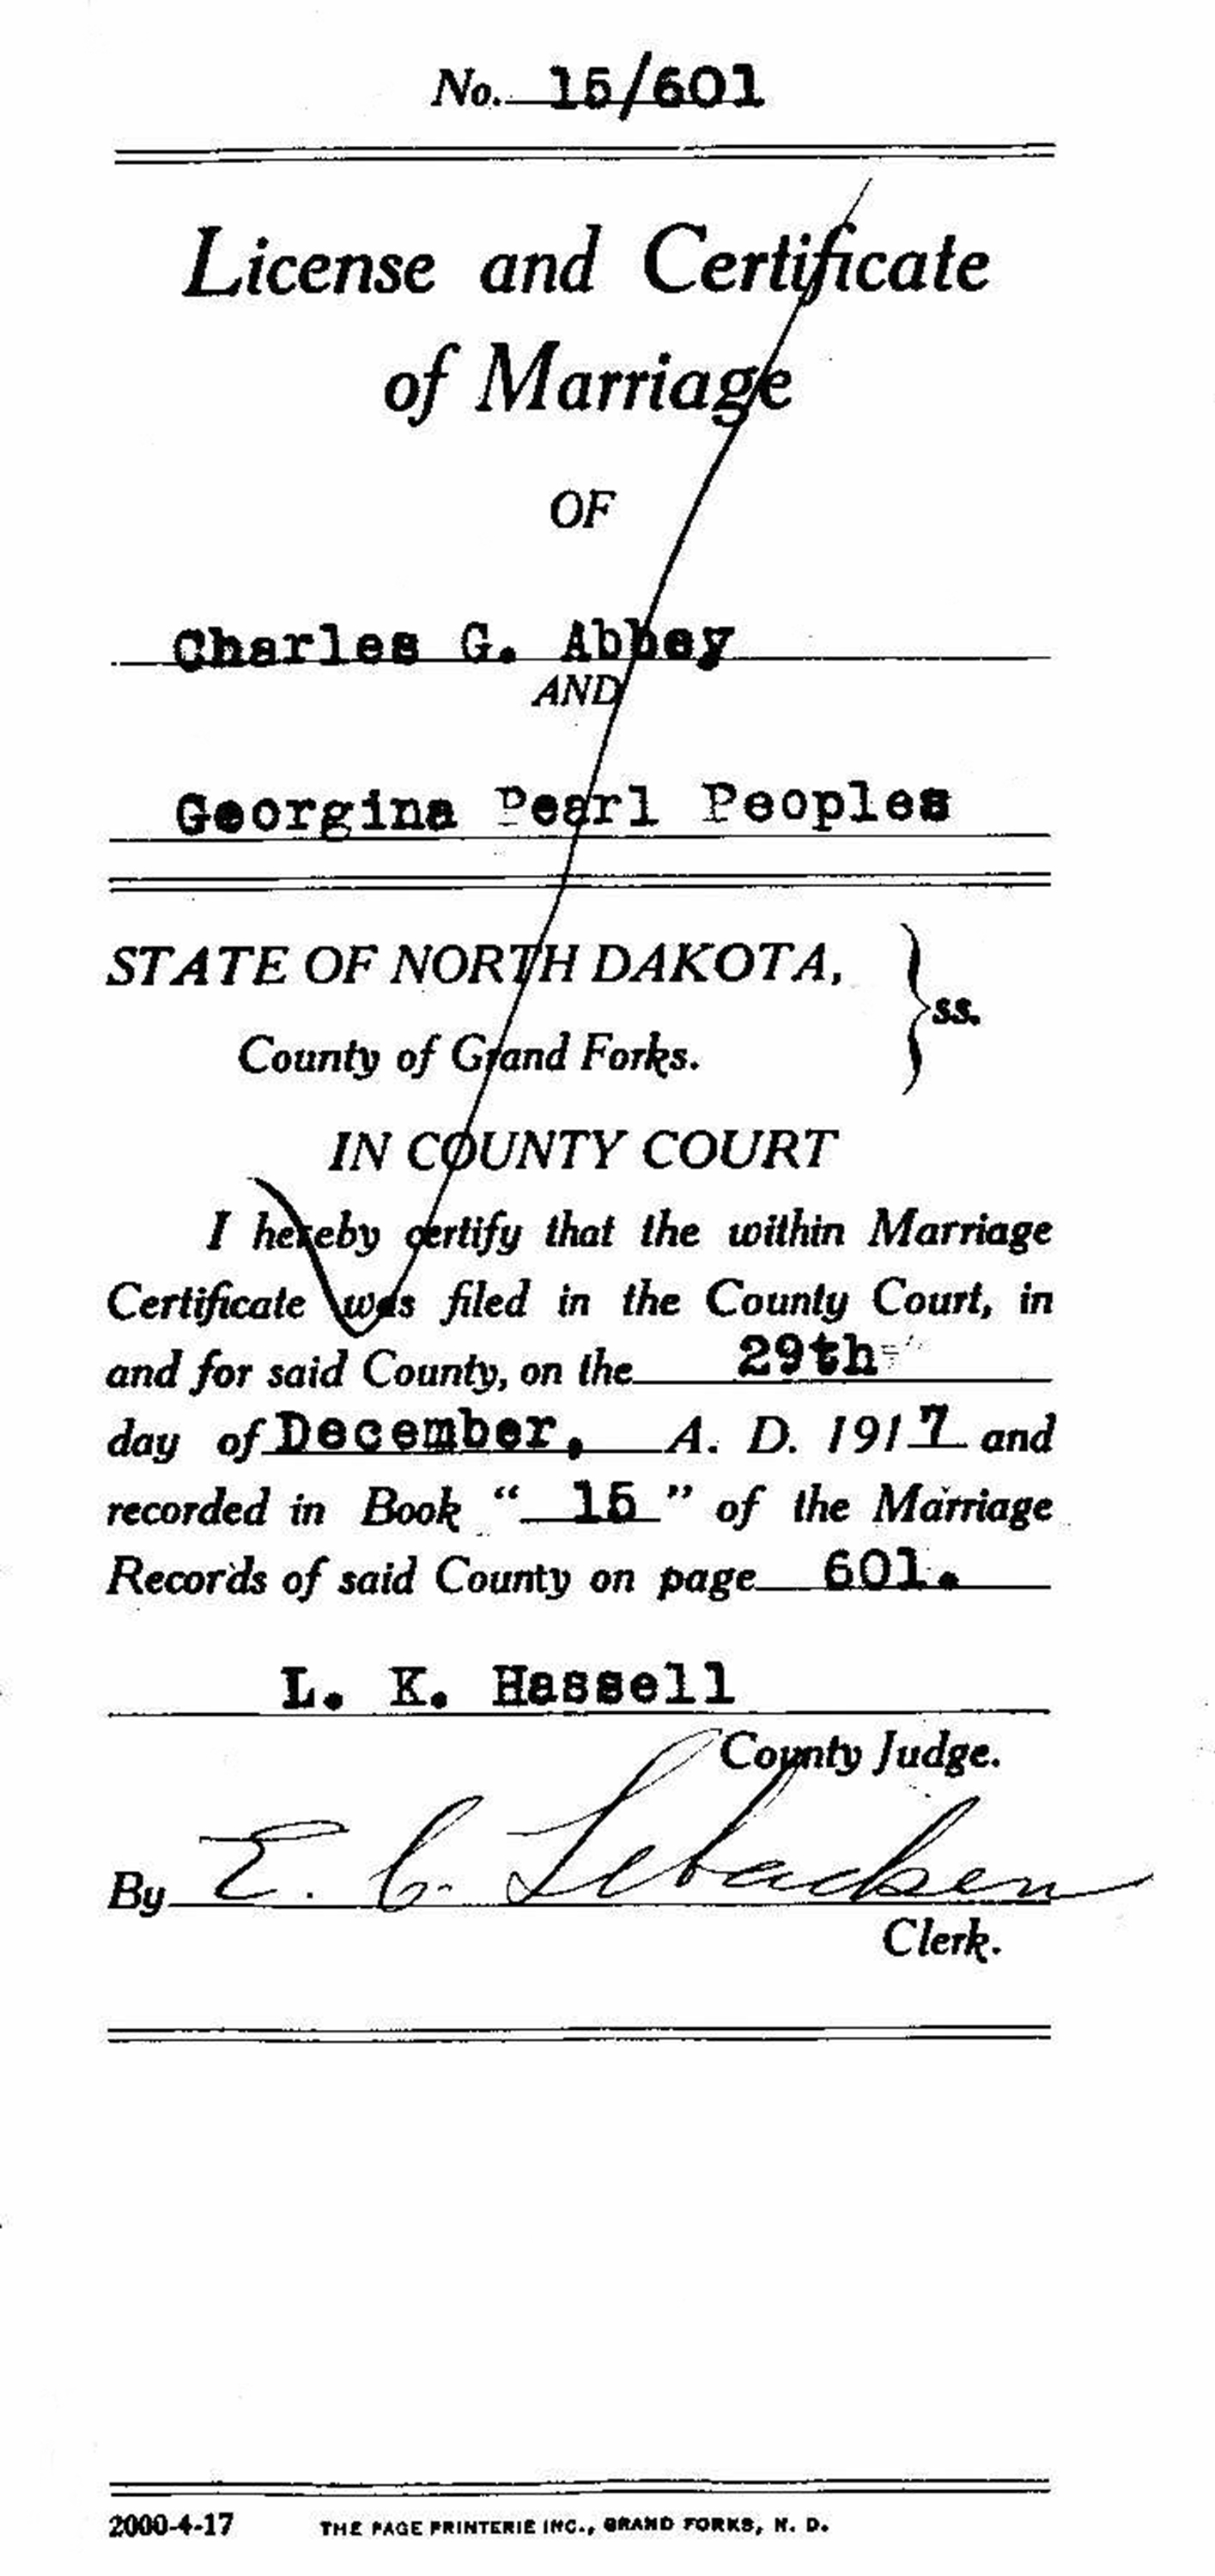 No. 15/601
License and Certificate
of Marriage
OF
Charles G. Abbey
AND
Georgina Pearl Peoples
STATE OF NORTH DAKOTA,
County of Grand Forks.
} ss.
IN COUNTY COURT
I hereby certify that the within Marriage
Certificate was filed in the County Court, in
and for said County, on the 29th
day of December, A. D. 1917 and
recorded in Book " 15 " of the Marriage
Records of said County on page 601.
L. K. Hassell
County Judge.
By E. C.
Clerk.
2000-4-17 THE PAGE PRINTERIE INC., GRAND FORKS, N. D.